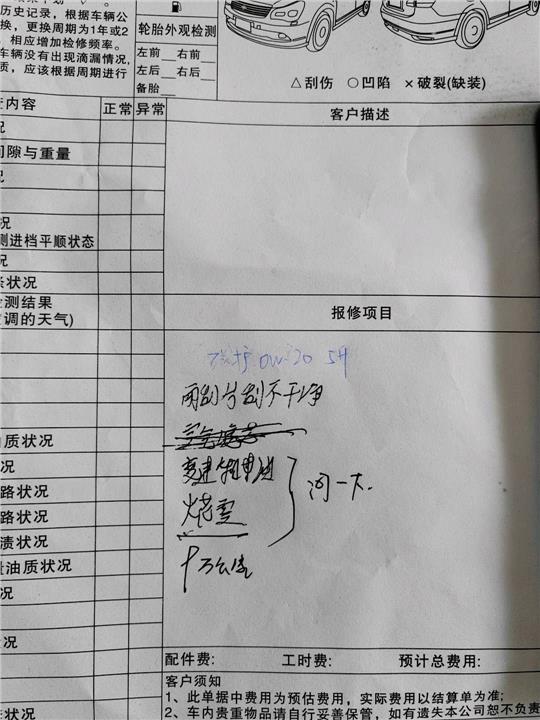 历史记录，根据车辆公
换，更换周期为1年或2
，相应增加检修频率。
车辆没有出现滴漏情况，
质，应该根据周期进行
轮胎外观检测
左前 右前
左后 右后
备胎
△刮伤 ○凹陷 ×破裂(缺装)
内容
正常
异常
客户描述
况
间隙与重量
况
测进档平顺状态
况
条状况
检测结果
空调的天气)
报修项目
保护 0W-20 5升
雨刮片刮不干净
变速箱
火花塞
问一下.
十万公里
油质状况
况
路状况
路状况
渍状况
油质状况
况
况
状况
配件费:
工时费:
预计总费用:
客户须知
1、此单据中费用为预估费用，实际费用以结算单为准;
2、车内贵重物品请自行妥善保管，如有遗失本公司恕不负责